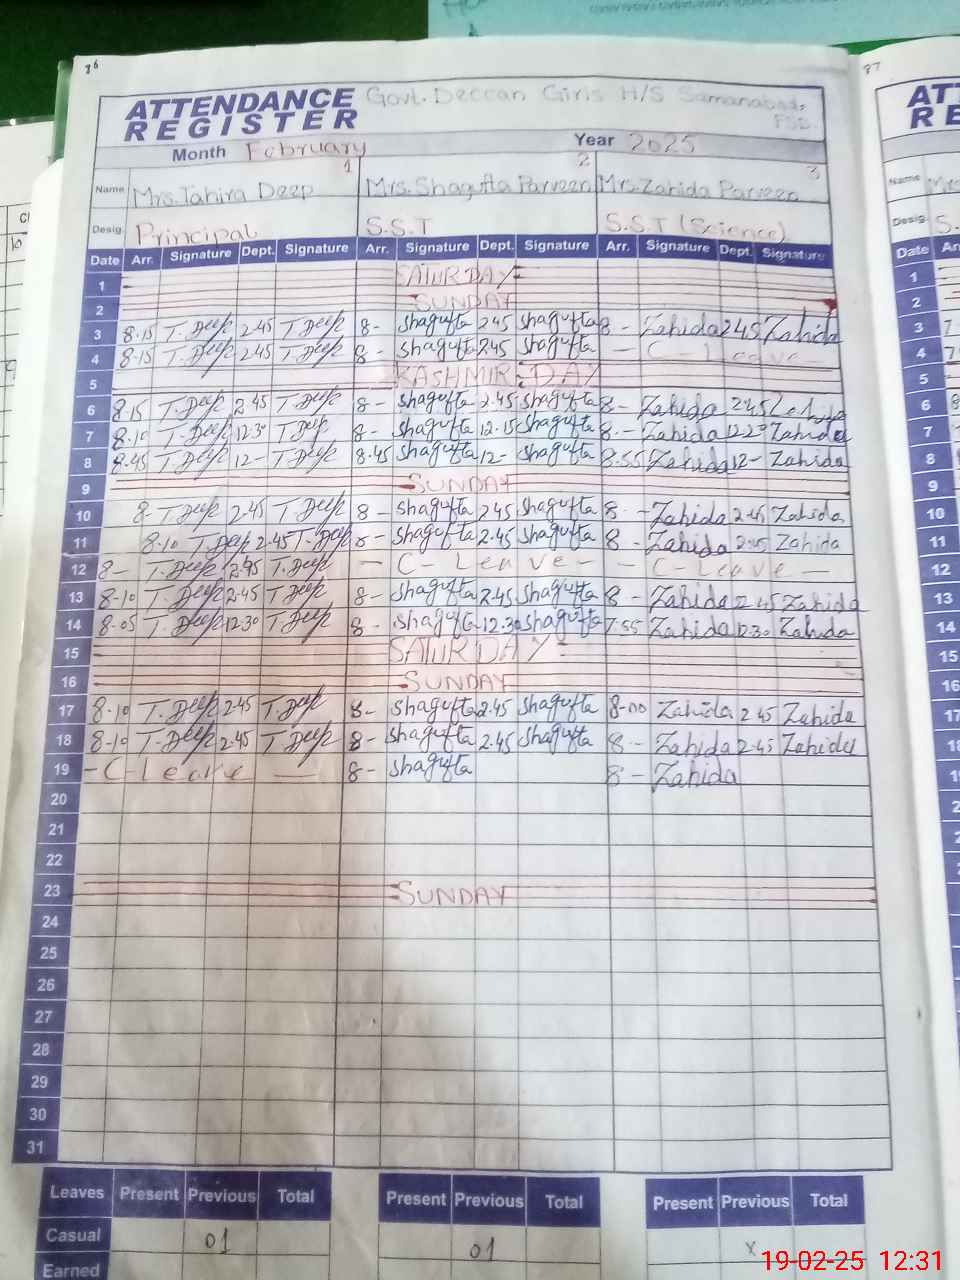 36
ATTENDANCE REGISTER Govt. Deccan Girls H/S Samanabad, FSD.
Month February Year 2025
1 2 3
Name Mrs. Tahira Deep Mrs. Shagufta Parveen Mrs. Zahida Parveen
Desig. Principal S.S.T S.S.T (Science)
Date Arr. Signature Dept. Signature Arr. Signature Dept. Signature Arr. Signature Dept. Signature
1 SATURDAY
2 SUNDAY
3 8.15 T. Deep 2.45 T. Deep 8- Shagufta 2.45 Shagufta 8- Zahida 2.45 Zahida
4 8.15 T. Deep 2.45 T. Deep 8- Shagufta 2.45 Shagufta - C - Leave
5 KASHMIR DAY
6 8.15 T. Deep 2.45 T. Deep 8- Shagufta 2.45 Shagufta 8- Zahida 2.45
7 8.10 T. Deep 12.30 T. Deep 8- Shagufta 12.15 Shagufta 8.- Zahida 12.20 Zahida
8 8.45 T. Deep 12- T. Deep 8.45 Shagufta 12- Shagufta 8.55 Zahida 12- Zahida
9 SUNDAY
10 8 T. Deep 2.45 T. Deep 8- Shagufta 2.45 Shagufta 8- Zahida 2.45 Zahida
11 8.10 T. Deep 2.45 T. Deep 8- Shagufta 2.45 Shagufta 8- Zahida 2.45 Zahida
12 8- T. Deep 2.45 T. Deep - C - Leave - - C - Leave -
13 8-10 T. Deep 2.45 T. Deep 8- Shagufta 2.45 Shagufta 8- Zahida 2.45 Zahida
14 8.05 T. Deep 12.30 T. Deep 8- Shagufta 12.30 Shagufta 7.55 Zahida 12.30 Zahida
15 SATURDAY
16 SUNDAY
17 8-10 T. Deep 2.45 T. Deep 8- Shagufta 2.45 Shagufta 8-00 Zahida 2.45 Zahida
18 8-10 T. Deep 2.45 T. Deep 8- Shagufta 2.45 Shagufta 8- Zahida 2.45 Zahida
19 - C - Leave - 8- Shagufta 8- Zahida
20
21
22
23 SUNDAY
24
25
26
27
28
29
30
31
Leaves Present Previous Total Present Previous Total Present Previous Total
Casual 01 01 x
Earned
19-02-25 12:31